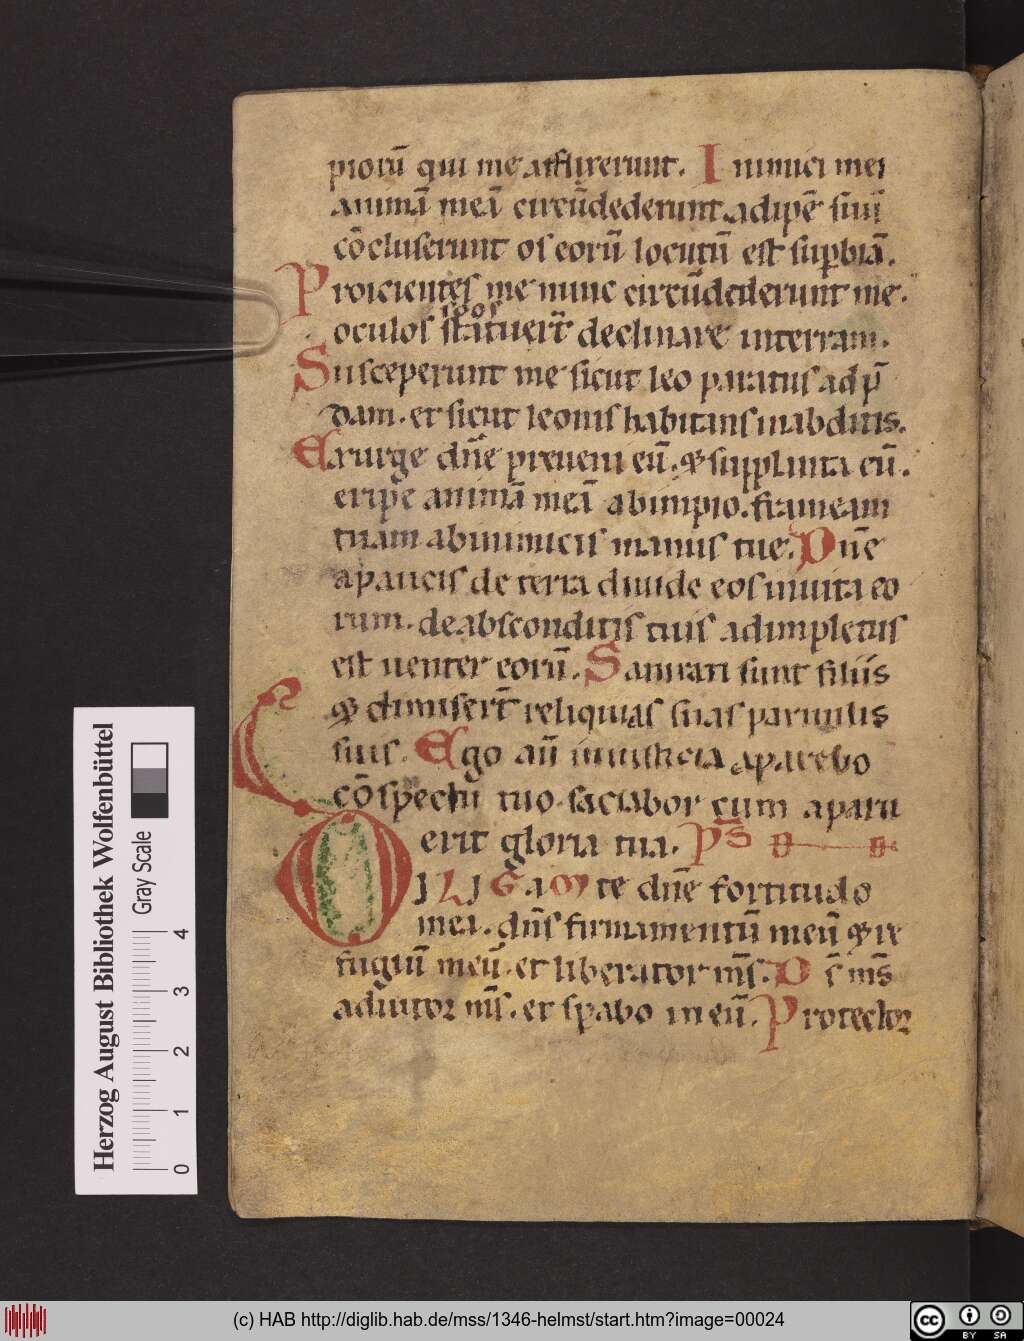 piorū qui me afflixerunt. Inimici mei
animā meā circūdederunt adipē suū
cōcluserunt os eorū locutū est supbiā.
Proicientes me nunc circūdederunt me.
suos
oculos statuert̄ declinare in terram.
Susceperunt me sicut leo paratus ad p̄
dam. et sicut leonis habitans in abditis.
Exurge dn̄e preueni eū. & supplanta eū.
eripe animā meā ab impio. frameam
tuam ab inimicis manus tue. Dn̄e
a paucis de terra diuide eos in uita eo
rum. de absconditis tuis adimpletus
est uenter eorū. Saturati sunt filiis
& dimisert̄ reliquias suas paruulis
suis. Ego aū in iusticia aparebo
cōspectu tuo. saciabor cum aparu
erit gloria tua. Ps̄
DILIGAM te dn̄e fortitudo
mea. dn̄s firmamentū meū & re
fugiū meū. et liberator m̄s. Ds̄ m̄s
adiutor m̄s. et spabo in eū. Protector
Herzog August Bibliothek Wolfenbüttel
Gray Scale
0 1 2 3 4
(c) HAB http://diglib.hab.de/mss/1346-helmst/start.htm?image=00024
cc BY SA